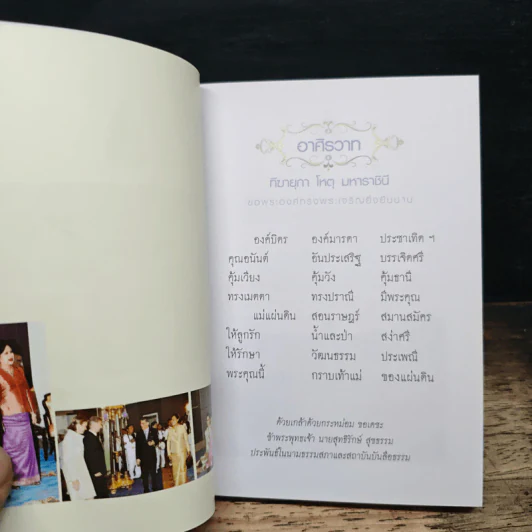 อาศิรวาท
ทีฆายุกา โหตุ มหาราชินี
ขอพระองค์ทรงพระเจริญยิ่งยืนนาน
องค์มิตร องค์มารดา ประชาเทิด ฯ
คุณอนันต์ อันประเสริฐ บรรเจิดศรี
คุ้มเวียง คุ้มวัง คุ้มธานี
ทรงเมตตา ทรงปราณี มีพระคุณ
แม่แผ่นดิน สอนราษฎร์ สมานสมัคร
ให้ลูกรัก น้ำและป่า สง่าศรี
ให้รักษา วัฒนธรรม ประเพณี
พระคุณนี้ กราบเท้าแม่ ของแผ่นดิน
ด้วยเกล้าด้วยกระหม่อม ขอเดชะ
ข้าพระพุทธเจ้า นายสุทธิรักษ์ สุขธรรม
ประพันธ์ในนามธรรมสภาและสถาบันบันลือธรรม